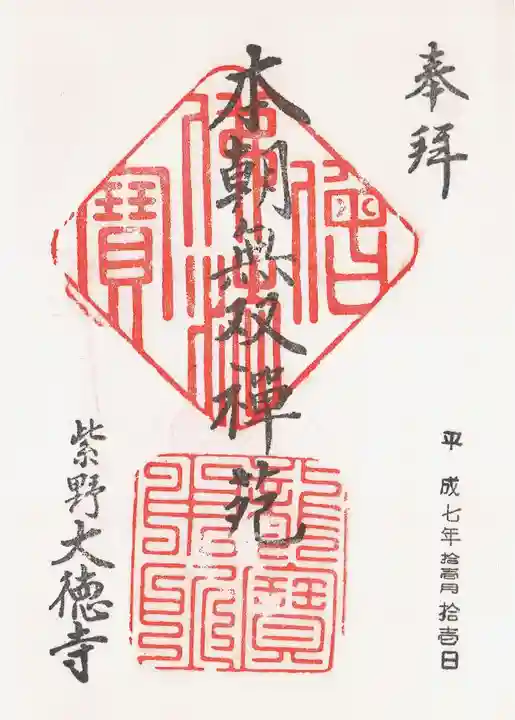 奉拜
平成七年拾壹月拾壱日
本朝無双禅苑
佛法僧寶
紫野大徳寺